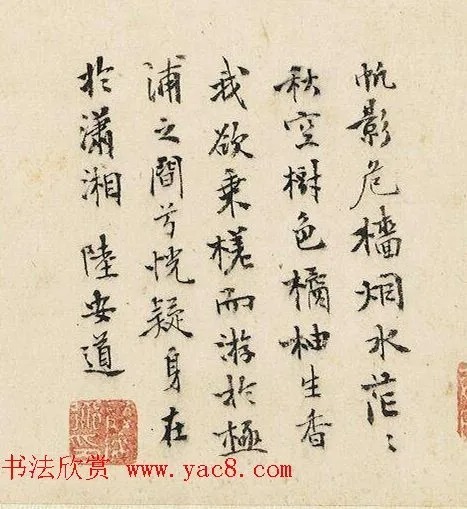 帆影危樯烟水茫〻
秋空樹色橘柚生香
我欲乗槎而游於極
浦之間兮恍疑身在
於瀟湘 陸安道
书法欣赏 www.yac8.com